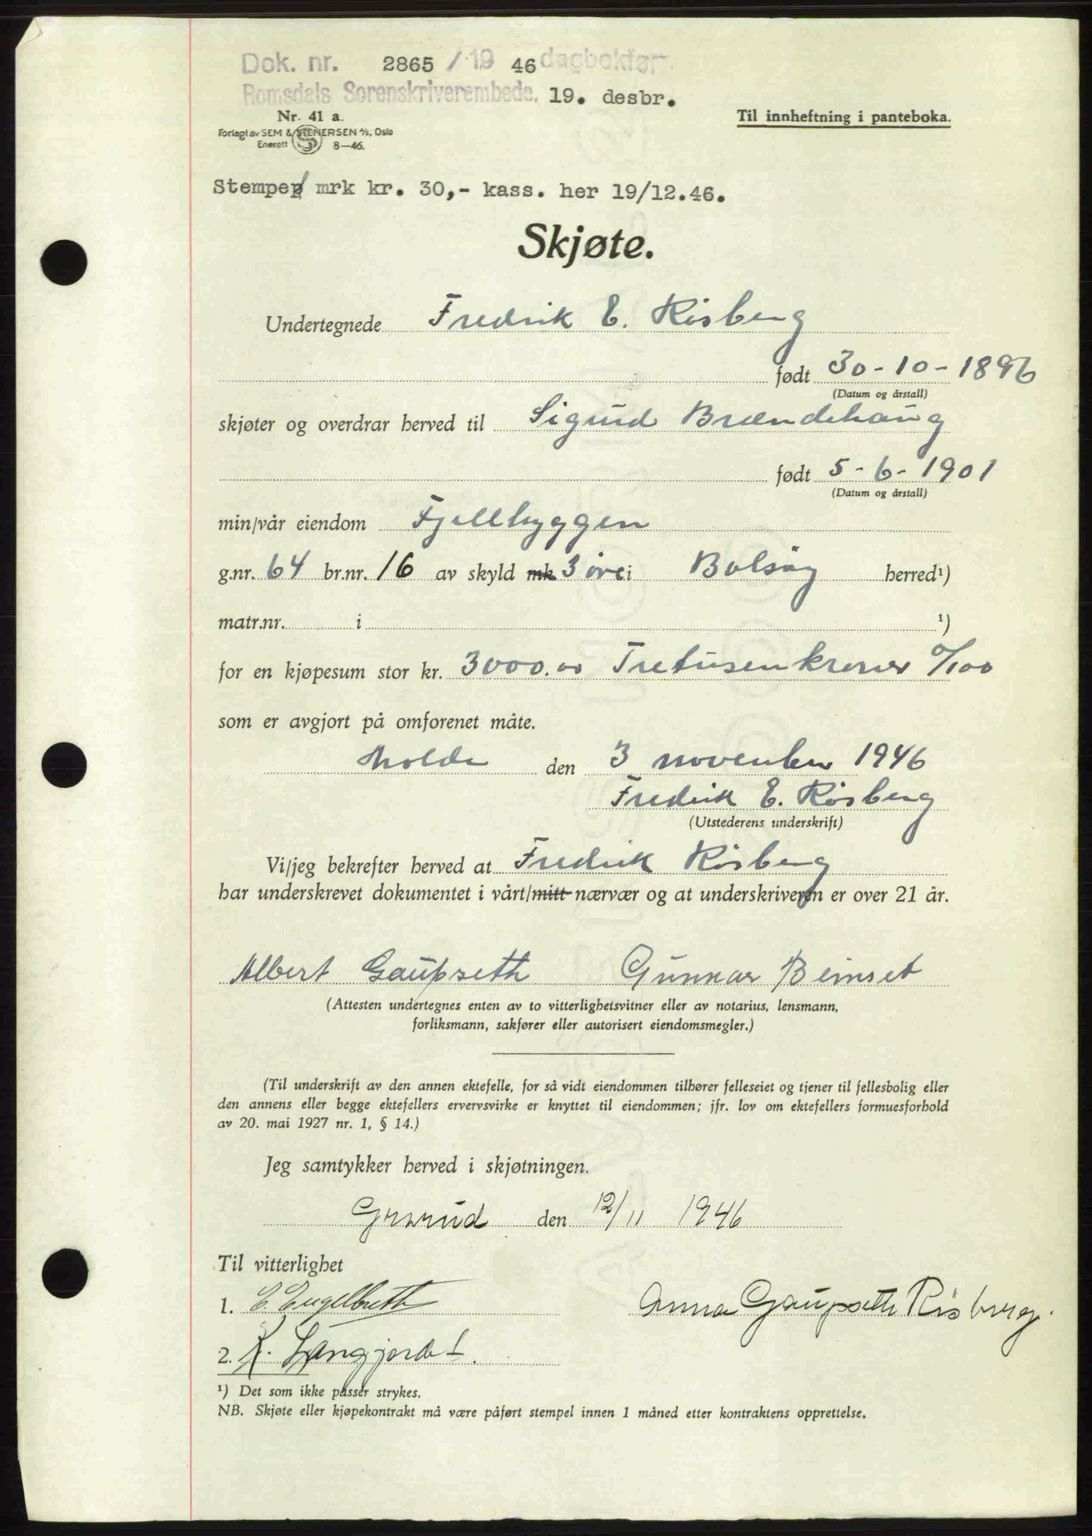 Dok. nr. 2865 / 19 46 dagbokfør
Romsdals Sorenskriverembede. 19. desbr.
Nr. 41 a.
Forlagt av SEM & STENERSEN A/S, Oslo
Enerett 8-46.
Til innheftning i panteboka.
Stempel mrk kr. 30,- kass. her 19/12.46.
Skjøte.
Undertegnede Fredrik E. Risberg
født 30-10-1896
(Datum og årstall)
skjøter og overdrar herved til Sigrud Brændehaug
født 5-6-1901
(Datum og årstall)
min/vår eiendom Fjellhyggen
g.nr. 64 br.nr. 16 av skyld mk 3 øre i Bolsøy herred¹)
matr.nr. i ¹)
for en kjøpesum stor kr. 3000.00 Tretusenkroner 0/100
som er avgjort på omforenet måte.
Molde den 3 november 1946
Fredrik E. Risberg
(Utstederens underskrift)
Vi/jeg bekrefter herved at Fredrik Risberg
har underskrevet dokumentet i vårt/mitt nærvær og at underskriveren er over 21 år.
Albert Gaupseth Gunnar Beinset
(Attesten undertegnes enten av to vitterlighetsvitner eller av notarius, lensmann,
forliksmann, sakfører eller autorisert eiendomsmegler.)
(Til underskrift av den annen ektefelle, for så vidt eiendommen tilhører felleseiet og tjener til fellesbolig eller
den annens eller begge ektefellers ervervsvirke er knyttet til eiendommen; jfr. lov om ektefellers formuesforhold
av 20. mai 1927 nr. 1, § 14.)
Jeg samtykker herved i skjøtningen.
Grorud den 12/11 1946
Til vitterlighet
1. E. Engelbreth
Anna Gaupseth Risberg.
2. K. Langjordet.
¹) Det som ikke passer strykes.
NB. Skjøte eller kjøpekontrakt må være påført stempel innen 1 måned etter kontraktens opprettelse.